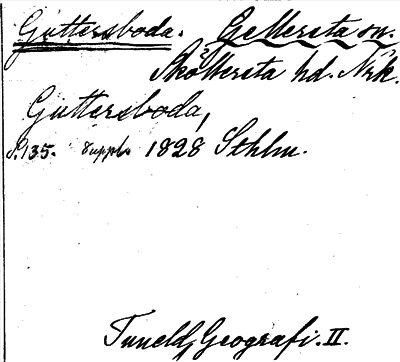 Guttersboda. Gellersta sn.
Sköllersta hd. Nrk.
Guttersboda,
S. 135. Suppl. 1828 Sthlm.
Tunelds Geografi. II.